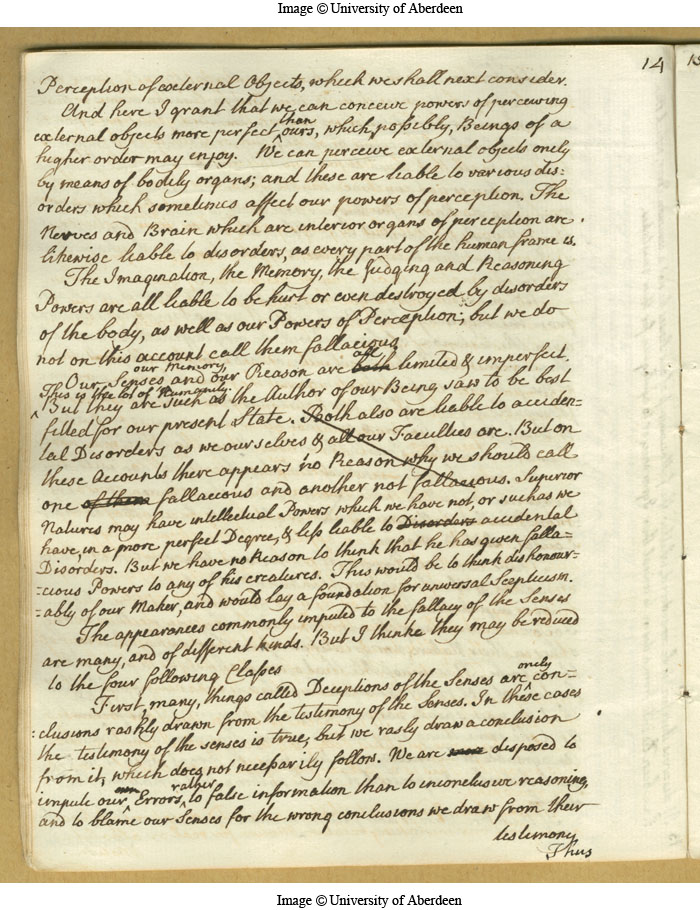 Image © University of Aberdeen
14
Perception of external Objects, which we shall next consider.
And here I grant that we can conceive powers of perceiving
external objects more perfect than ours, which, possibly, Beings of a
higher order may enjoy. We can perceive external objects only
by means of bodily organs; and these are liable to various dis:
orders which sometimes affect our powers of perception. The
Nerves and Brain which are interior organs of perception are
likewise liable to disorders, as every part of the human frame is.
The Imagination, the Memory, the Judging and Reasoning
Powers are all liable to be hurt or even destroyed by disorders
of the body, as well as our Powers of Perception; but we do
not on this account call them fallacious
Our Senses our Memory and our Reason are both all limited & imperfect.
This is the lot of Humanity.
But they are such as the Author of our Being saw to be best
fitted for our present State. Both also are liable to acciden=
tal Disorders as we ourselves & all our Faculties are. But on
these Accounts there appears no Reason why we should call
one of them fallacious and another not fallacious. Superior
Natures may have intellectual Powers which we have not, or such as we
have, in a more perfect Degree, & less liable to Disorders accidental
Disorders. But we have no Reason to think that he has given falla=
=cious Powers to any of his creatures. This would be to think dishonour=
=ably of our Maker, and would lay a foundation for universal Scepticism.
The appearances commonly imputed to the fallacy of the Senses
are many, and of different kinds. But I thinke they may be reduced
to the four following Classes
First, many, things called Deceptions of the Senses are only con=
:clusions rashly drawn from the testimony of the Senses. In these cases
the testimony of the senses is true, but we rasly draw a conclusion
from it, which does not necessarily follow. We are disposed to
impute our Errors rather to false information than to inconclusive reasoning,
and to blame our Senses for the wrong conclusions we draw from their
testimony
Thus
Image © University of Aberdeen